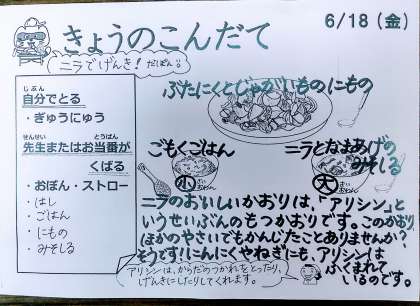 きょうのこんだて
6/18(金)
ニラでげんき!だぽん♪
自分でとる
じぶん
・ぎゅうにゅう
先生またはお当番が
せんせい とうばん
くばる
・おぼん・ストロー
・はし
・ごはん
・にもの
・みそしる
ぶたにくとじゃがいものにもの
ごもくごはん
小
おわん
ニラとなまあげの
みそしる
大
おわん
ニラのおいしいかおりは、「アリシン」と
いうせいぶんのもつかおりです。このかおり、
ほかのやさいでもかんじたことありませんか?
そうです!にんにくやねぎにも、アリシンは
ふくまれて
いるのです。
アリシンは、からだのつかれをとったり、
げんきにしたりしてくれます。